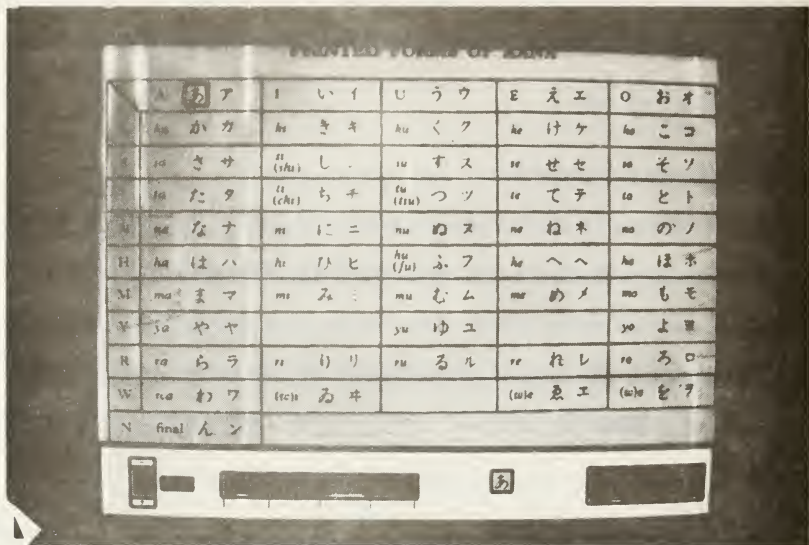 PRINTED FORMS OF KANA
A あ ア I い イ U う ウ E え エ O お オ
ka か カ ki き キ ku く ク ke け ケ ko こ コ
sa さ サ si (shi) し su す ス se せ セ so そ ソ
ta た タ ti (chi) ち チ tu (tsu) つ ツ te て テ to と ト
N na な ナ ni に ニ nu ぬ ヌ ne ね ネ no の ノ
H ha は ハ hi ひ ヒ hu (fu) ふ フ he へ ヘ ho ほ ホ
M ma ま マ mi み mu む ム me め メ mo も モ
Y ya や ヤ yu ゆ ユ yo よ ヨ
R ra ら ラ ri り リ ru る ル re れ レ ro ろ ロ
W wa わ ワ (w)i ゐ ヰ (w)e ゑ (w)o を ヲ
N final ん ン
あ